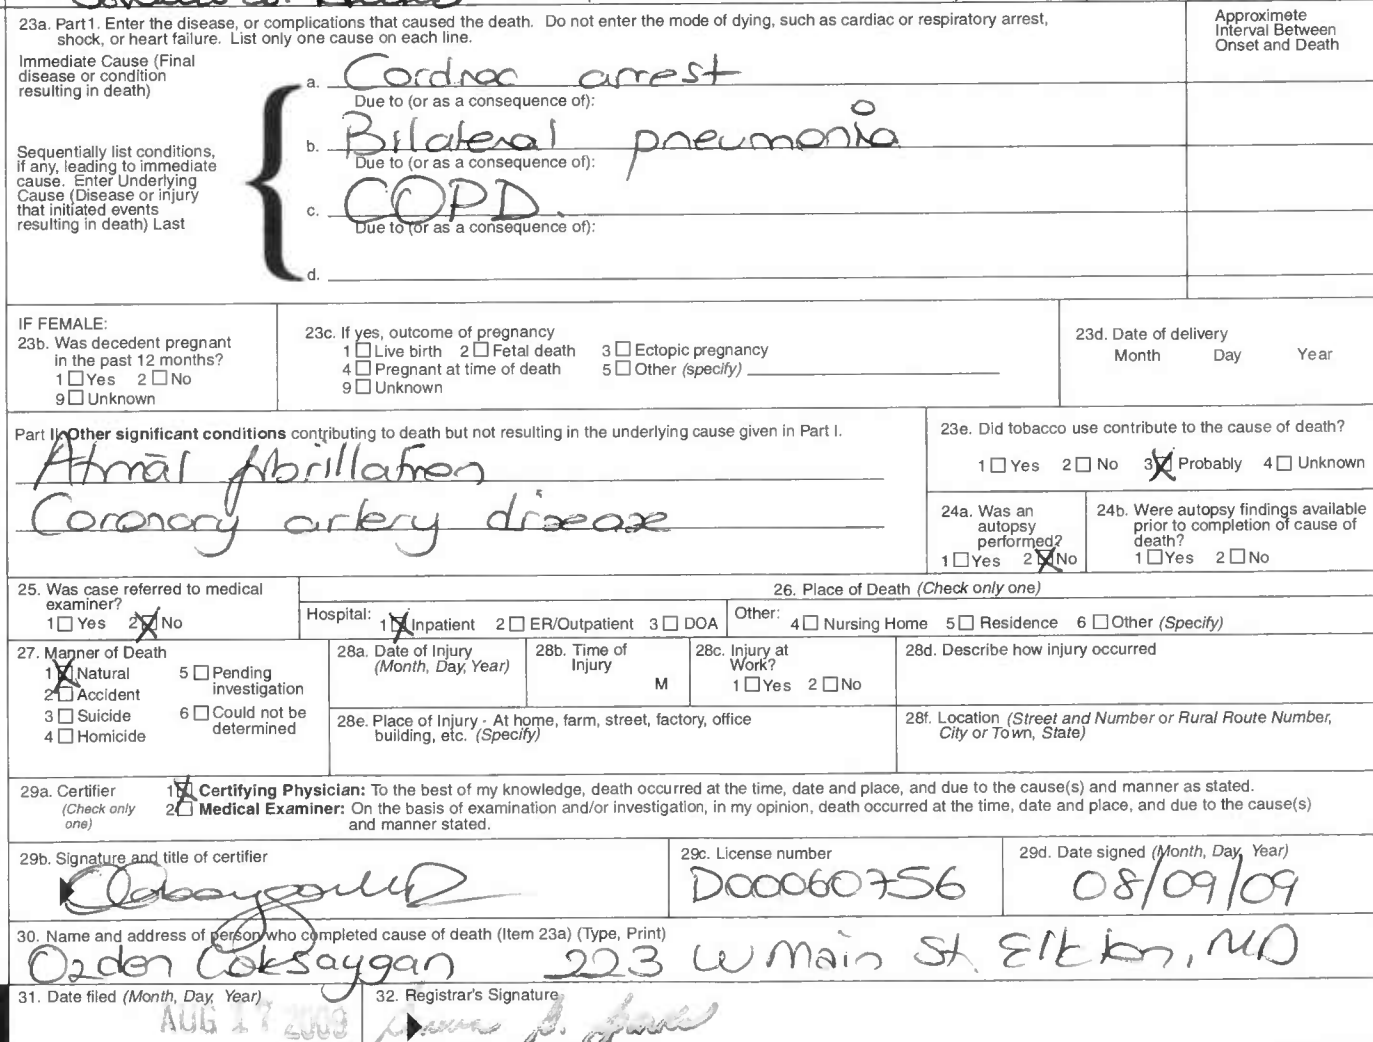 23a. Part1. Enter the disease, or complications that caused the death. Do not enter the mode of dying, such as cardiac or respiratory arrest,
shock, or heart failure. List only one cause on each line.
Approximete
Interval Between
Onset and Death
Immediate Cause (Final
disease or condition
resulting in death)
a. Cardiac arrest
Due to (or as a consequence of):
b. Bilateral pneumonia
Due to (or as a consequence of):
Sequentially list conditions,
if any, leading to immediate
cause. Enter Underlying
Cause (Disease or injury
that initiated events
resulting in death) Last
c. COPD.
Due to (or as a consequence of):
d.
IF FEMALE:
23b. Was decedent pregnant
in the past 12 months?
1 ☐ Yes 2 ☐ No
9 ☐ Unknown
23c. If yes, outcome of pregnancy
1 ☐ Live birth 2 ☐ Fetal death 3 ☐ Ectopic pregnancy
4 ☐ Pregnant at time of death 5 ☐ Other (specify)
9 ☐ Unknown
23d. Date of delivery
Month Day Year
Part II. Other significant conditions contributing to death but not resulting in the underlying cause given in Part I.
Atrial fibrillation
Coronary artery disease
23e. Did tobacco use contribute to the cause of death?
1 ☐ Yes 2 ☐ No 3 ☒ Probably 4 ☐ Unknown
24a. Was an
autopsy
performed?
1 ☐ Yes 2 ☒ No
24b. Were autopsy findings available
prior to completion of cause of
death?
1 ☐ Yes 2 ☐ No
25. Was case referred to medical
examiner?
1 ☐ Yes 2 ☒ No
26. Place of Death (Check only one)
Hospital: 1 ☒ Inpatient 2 ☐ ER/Outpatient 3 ☐ DOA
Other: 4 ☐ Nursing Home 5 ☐ Residence 6 ☐ Other (Specify)
27. Manner of Death
1 ☒ Natural 5 ☐ Pending
investigation
2 ☐ Accident
3 ☐ Suicide 6 ☐ Could not be
determined
4 ☐ Homicide
28a. Date of Injury
(Month, Day, Year)
28b. Time of
Injury
M
28c. Injury at
Work?
1 ☐ Yes 2 ☐ No
28d. Describe how injury occurred
28e. Place of Injury - At home, farm, street, factory, office
building, etc. (Specify)
28f. Location (Street and Number or Rural Route Number,
City or Town, State)
29a. Certifier
(Check only
one)
1 ☒ Certifying Physician: To the best of my knowledge, death occurred at the time, date and place, and due to the cause(s) and manner as stated.
2 ☐ Medical Examiner: On the basis of examination and/or investigation, in my opinion, death occurred at the time, date and place, and due to the cause(s)
and manner stated.
29b. Signature and title of certifier
29c. License number
D00060756
29d. Date signed (Month, Day, Year)
08/09/09
30. Name and address of person who completed cause of death (Item 23a) (Type, Print)
Ozden Coksaygan 223 W Main St. Elkton, MD
31. Date filed (Month, Day, Year)
AUG 17 2009
32. Registrar's Signature